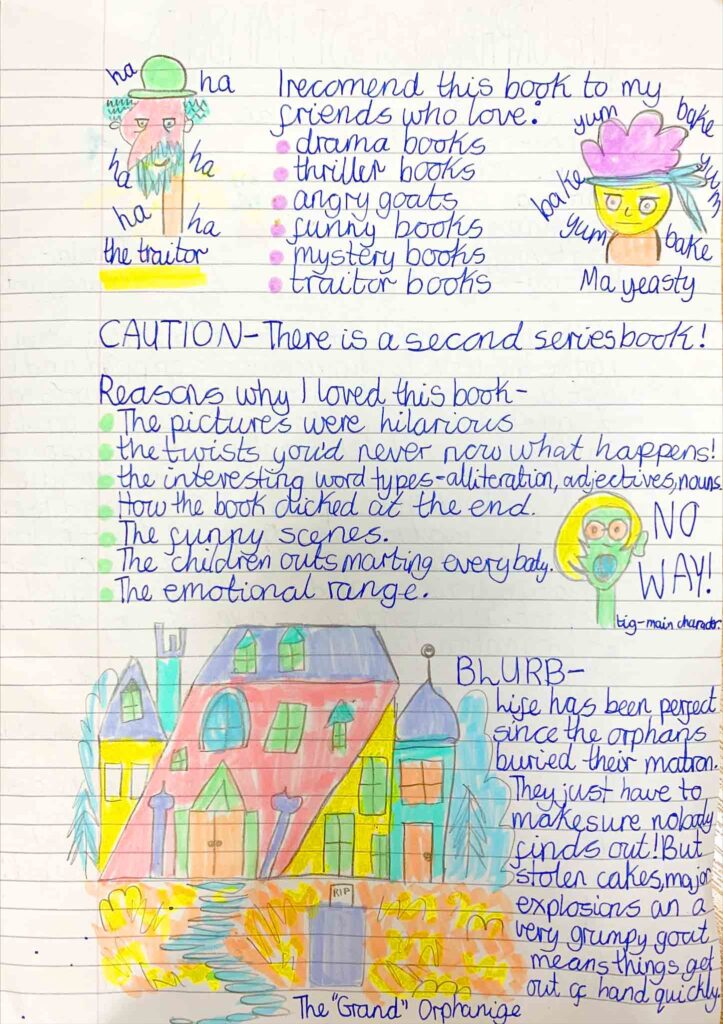 ha
ha
ha
ha
ha
ha
the traitor
I recomend this book to my
friends who love:
drama books
thriller books
angry goats
funny books
mystery books
traitor books
yum
bake
yum
bake
yum
bake
Ma yeasty
CAUTION- There is a second series book!
Reasons why I loved this book-
The pictures were hilarious
the twists you'd never now what happens!
the interesting word types-alliteration, adjectives, nouns.
How the book clicked at the end.
The funny scenes.
The children outsmarting everybody.
The emotional range.
NO
WAY!
tig-main character.
BLURB-
Life has been perfect
since the orphans
buried their matron.
They just have to
make sure nobody
finds out! But
stolen cakes, major
explosions an a
very grumpy goat
means things get
out of hand quickly
RIP
The "Grand" Orphanige